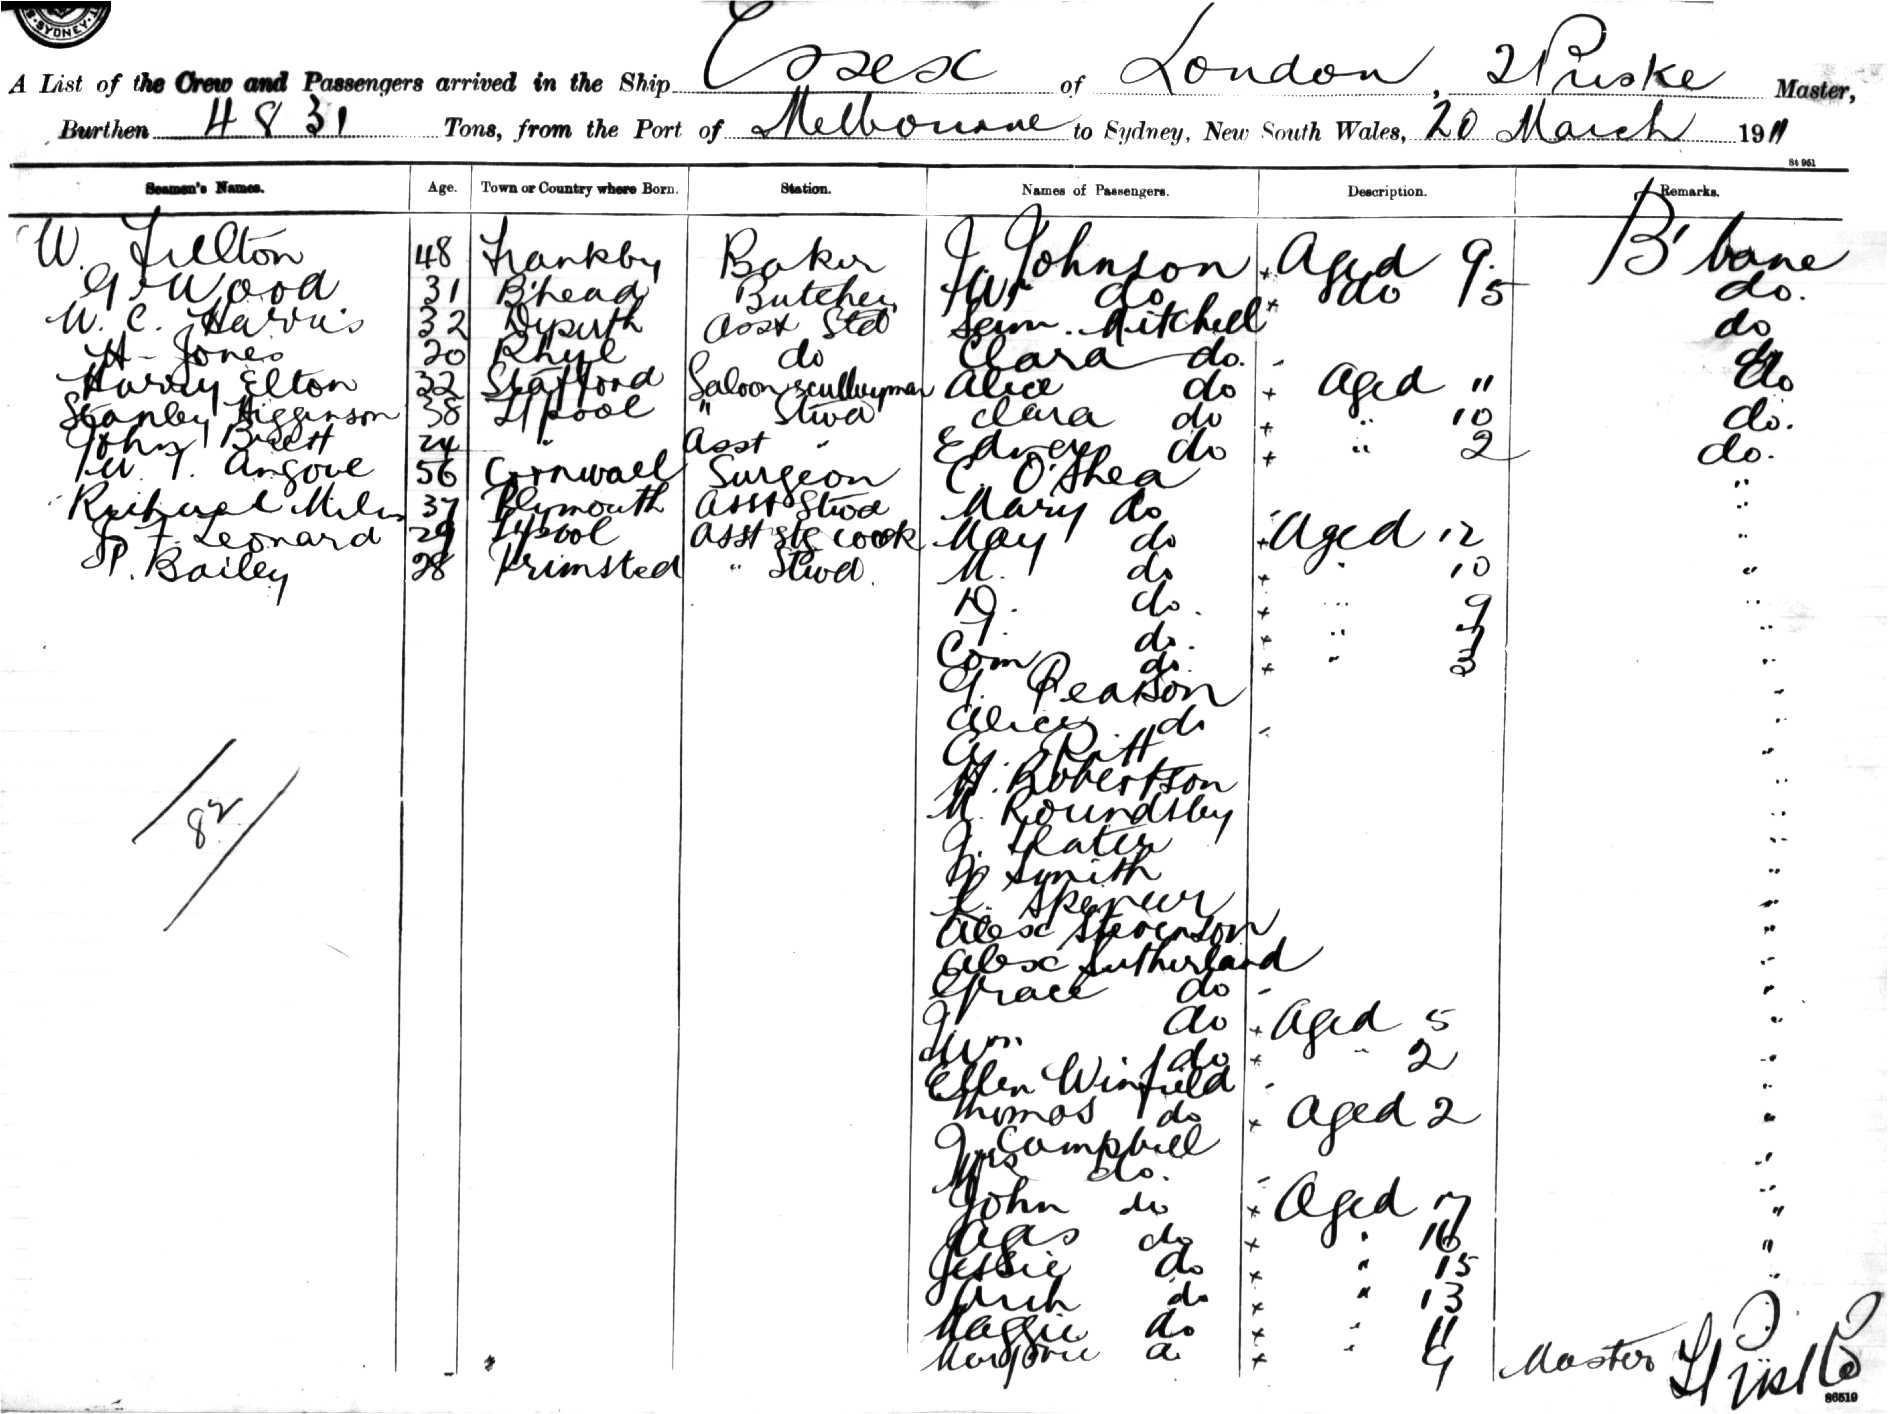 SYDNEY
A List of the Crew and Passengers arrived in the Ship Essex of London, Master,
Burthen 4831 Tons, from the Port of Melbourne to Sydney, New South Wales, 20 March 1911
84 961
Seamen's Names. Age. Town or Country where Born. Station. Names of Passengers. Description. Remarks.
W. Felton 48 Frankby Baker J. Johnson + Aged 9. B'bane
G. Wood 31 B'head Butcher Wr do + do 15 do.
W. C. Harris 32 Asst Std Sam. Mitchell do
H. Jones 20 Rhyl do Clara do. - do
Harry Elton 32 Stafford Saloon & sculleryman Alice do + Aged 11 do
Stanley Higginson 38 L'pool " Stwd Clara do + " 10 do.
John Brett 24 " Asst " do + " 2 do.
W. T. Angove 56 Cornwall Surgeon C. O'Shea "
Miles 37 Plymouth Asst Stwd Mary do - "
J. F. Leonard 29 L'pool Asst cook May do + Aged 12 "
P. Bailey 28 " Stwd. M. do + " 10 "
D. do. + " 9 "
J. do. + " 7 "
Com do. + " 3 "
G. Pearson "
Alice do - "
"
H. Robertson "
M. Roundsby "
J. Slater "
Smith "
Spencer "
Alex Stevenson "
Alex Sutherland "
Grace do - "
J do + Aged 5 "
Wm do + " 2 "
Ellen Winfield - "
Thomas do + Aged 2 "
J. Campbell "
Mrs do. - "
John do + Aged 17 "
Agas do + " 16 "
Jessie do + " 15 "
Arch do + " 13
Maggie do + " 11
Marjorie do + " 9 Master
82
86519